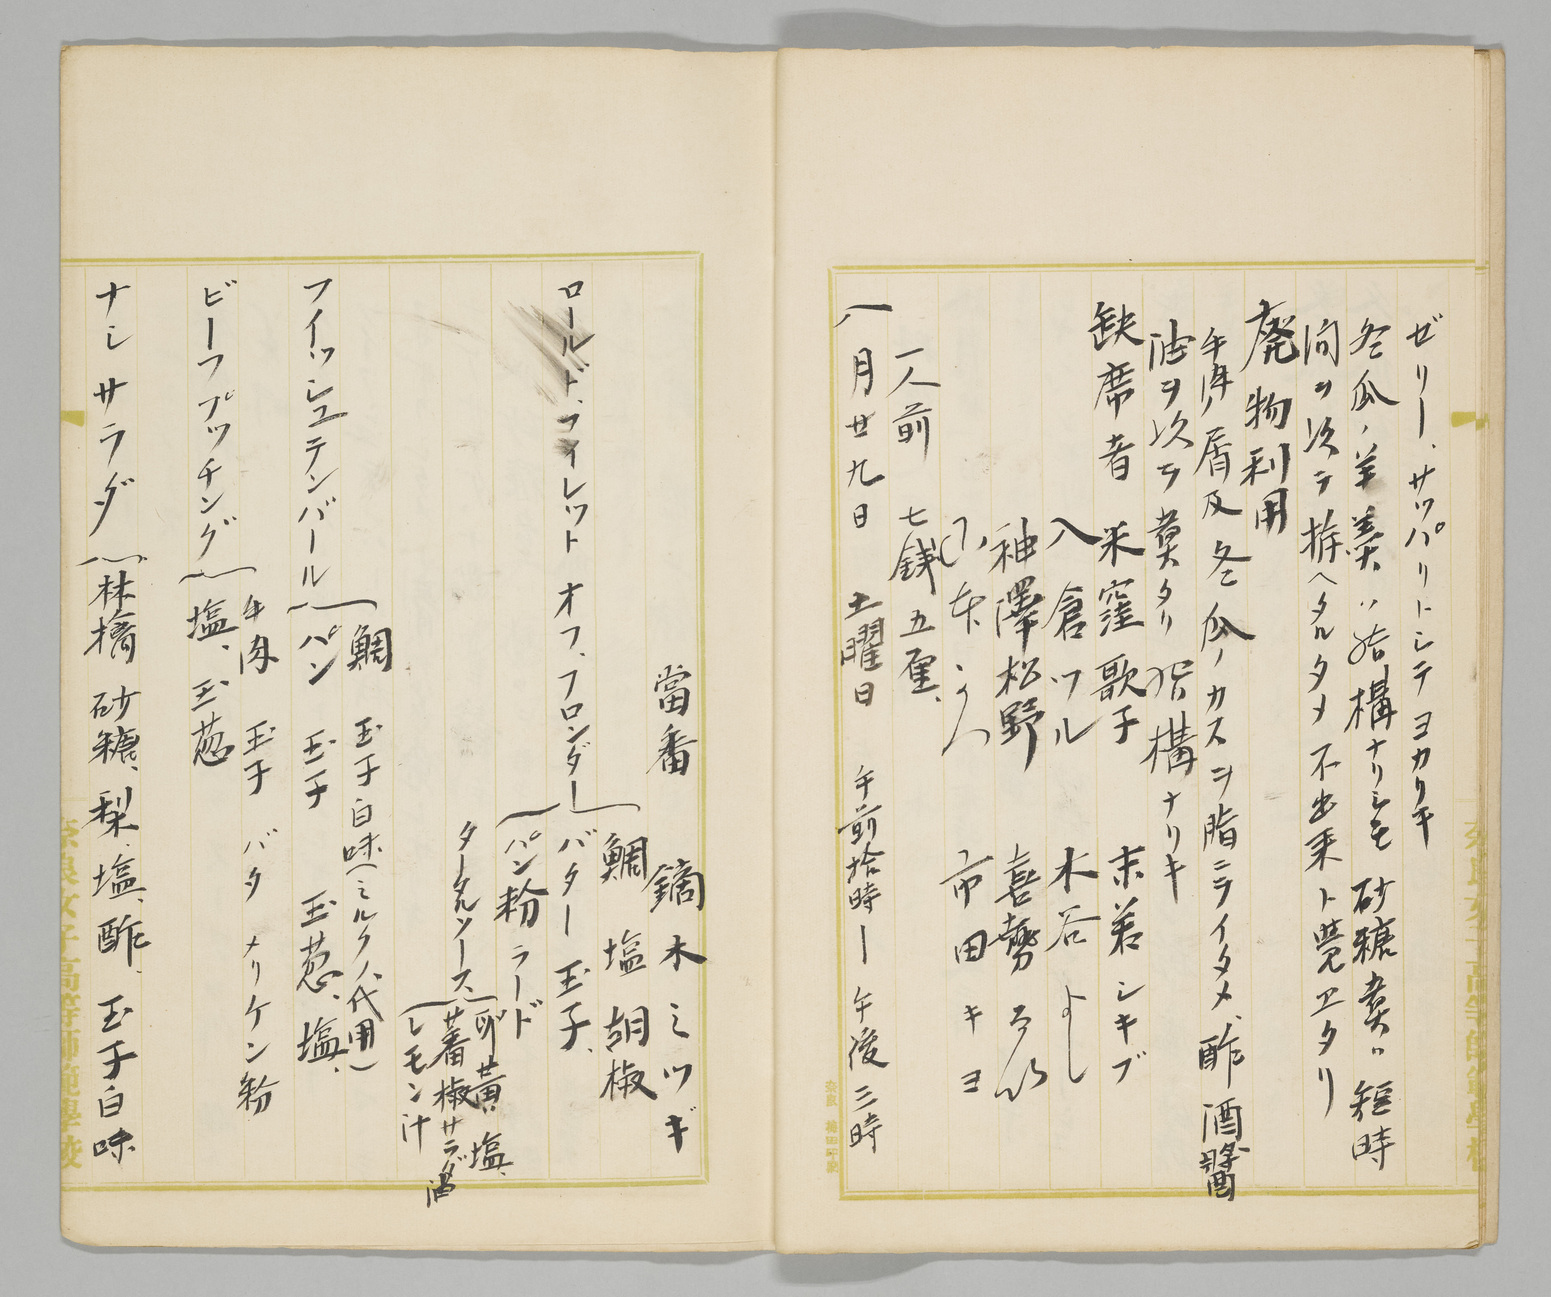 ゼリー、サッパリトシテヨカリキ
冬瓜ノ羊羹ハ結構ナリシモ砂糖煮ハ短時
間ヲ次テ拵ヘタルタメ不出来ト覚エタリ
廃物利用
牛肉ノ屑及冬瓜ノカスヲ脂ニテイタメ、酢酒醤
油ヲ次テ煮タリ結構ナリキ
缺席者 米窪歌子 末若シキブ
八倉ツル 木谷よし
神澤松野 喜勢
市田キヨ
一人前 七銭五厘、
八月廿九日 土曜日 午前拾時ー午後三時
當番 鏑木ミツギ
鯛 塩 胡椒
ロールド、フイレット オフ、フロンダー バター 玉子、
パン粉 ラード
タータルソース、卵黄、塩、
蕃椒 サラダ油
レモン汁
鯛 玉子白味(ミルクノ代用)
フイッシュテンバール パン 玉子 玉葱、塩、
牛肉 玉子 バタ メリケン粉
ビーフプッチング 塩、玉葱
ナシサラダ 林檎 砂糖、梨、塩、酢、玉子白味
奈良女子高等師範學校